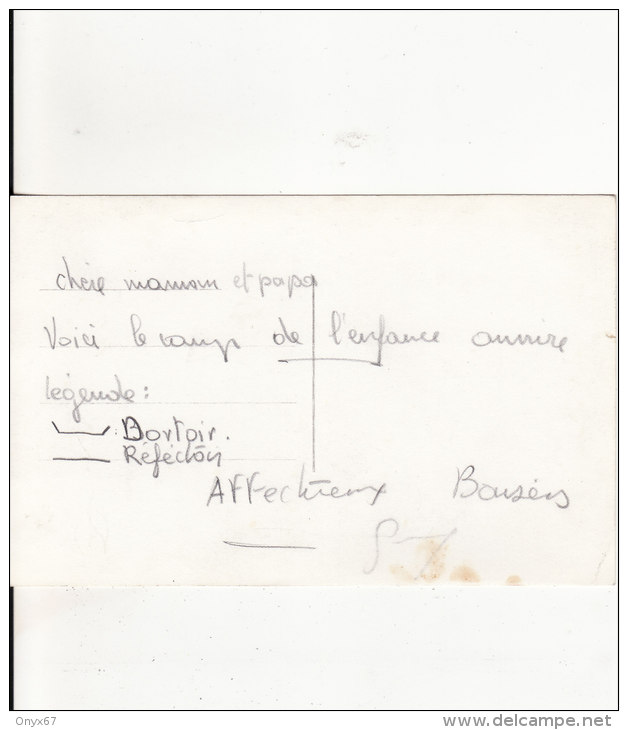 chère maman et papa
Voici le camp de l'enfance ouvrire
légende:
: Dortoir.
Réféctoir
Affectueux Baisers
Onyx67
www.delcampe.net